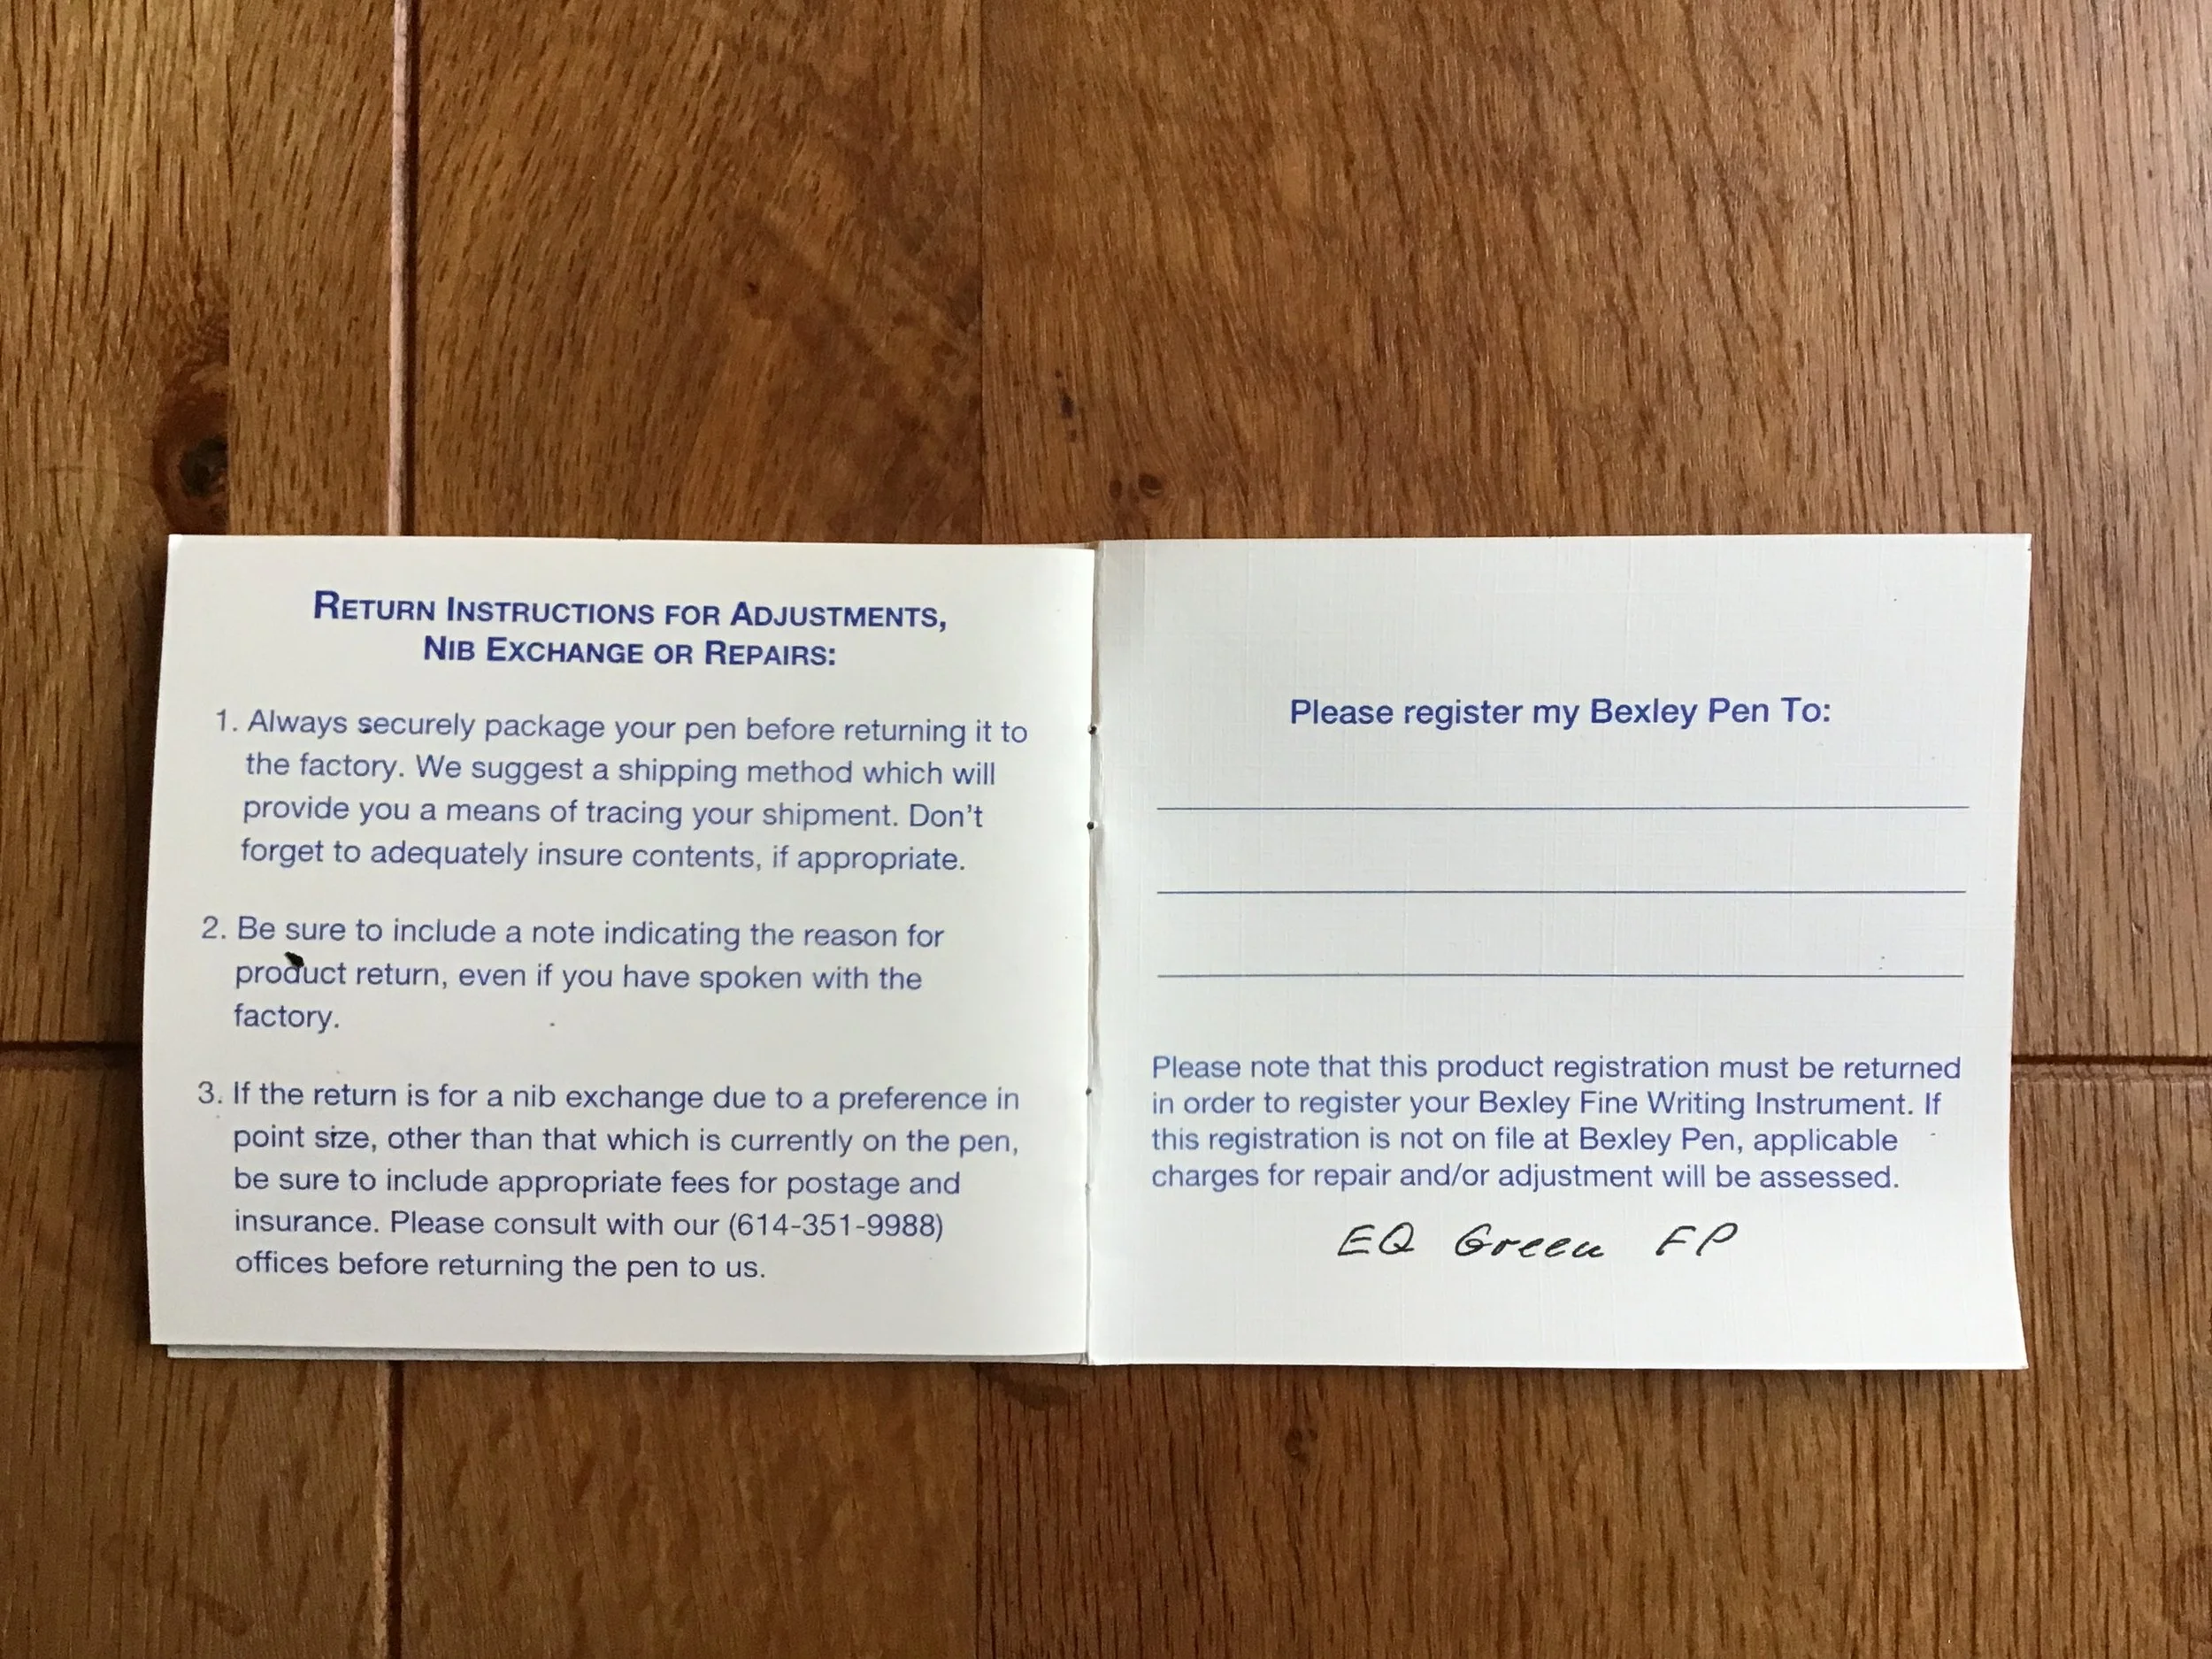 RETURN INSTRUCTIONS FOR ADJUSTMENTS,
NIB EXCHANGE OR REPAIRS:
1. Always securely package your pen before returning it to
the factory. We suggest a shipping method which will
provide you a means of tracing your shipment. Don't
forget to adequately insure contents, if appropriate.
2. Be sure to include a note indicating the reason for
product return, even if you have spoken with the
factory.
3. If the return is for a nib exchange due to a preference in
point size, other than that which is currently on the pen,
be sure to include appropriate fees for postage and
insurance. Please consult with our (614-351-9988)
offices before returning the pen to us.
Please register my Bexley Pen To:
Please note that this product registration must be returned
in order to register your Bexley Fine Writing Instrument. If
this registration is not on file at Bexley Pen, applicable
charges for repair and/or adjustment will be assessed.
EQ Green FP